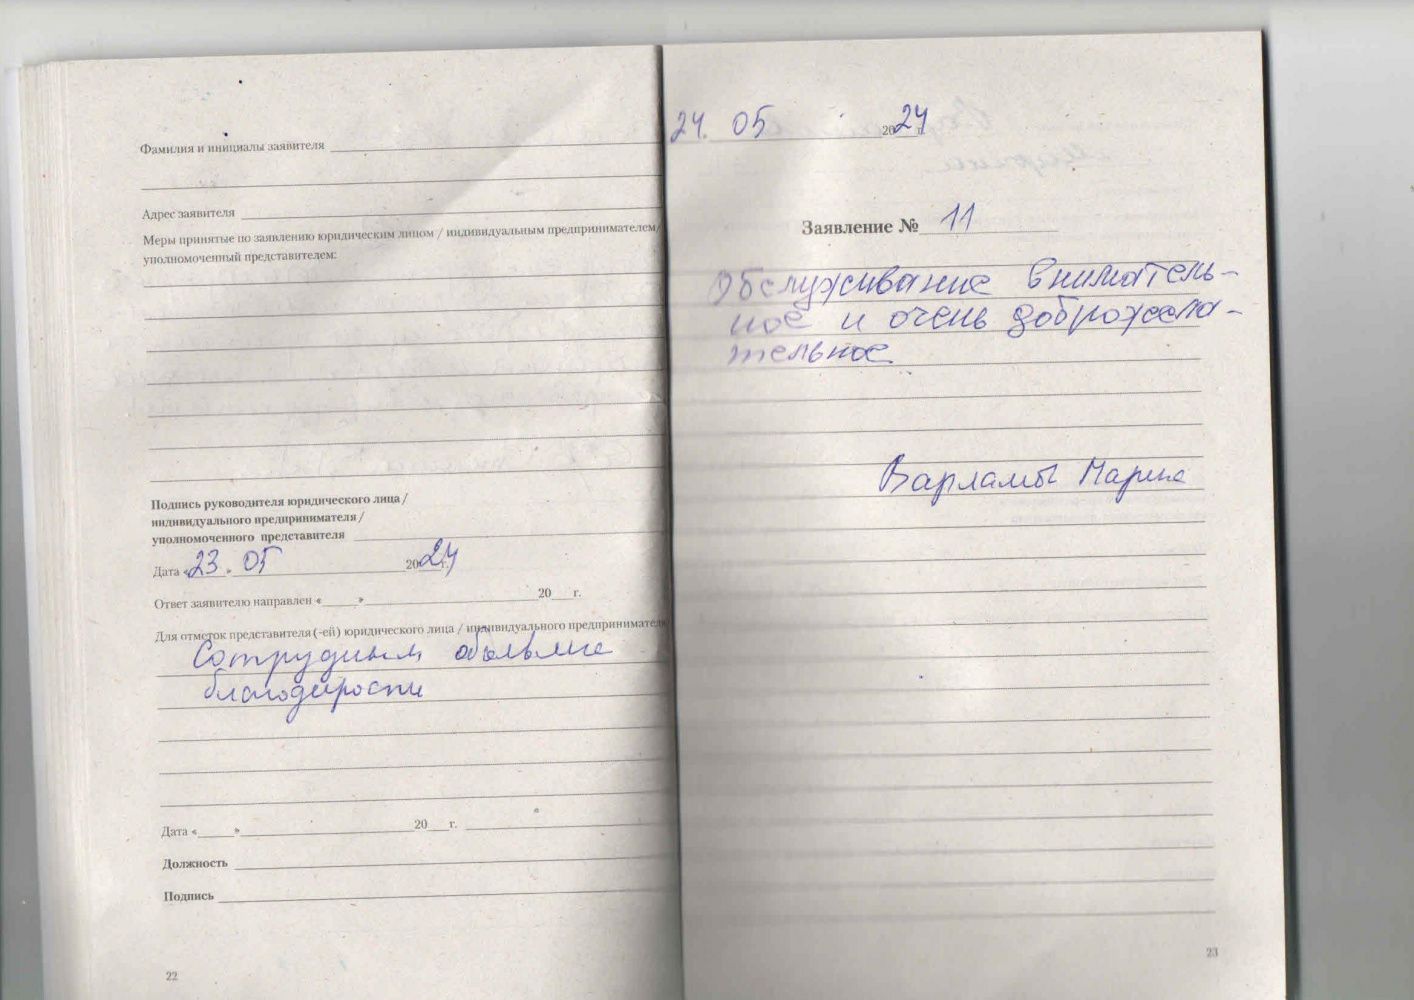 Фамилия и инициалы заявителя
Адрес заявителя
Меры принятые по заявлению юридическим лицом / индивидуальным предпринимателем/
уполномоченный представителем:
Подпись руководителя юридического лица /
индивидуального предпринимателя /
уполномоченного представителя
Дата «23» 05 2024 г.
Ответ заявителю направлен «____» 20__ г.
Для отметок представителя (-ей) юридического лица / индивидуального предпринимателя
Сотрудникам объявлены
благодарности
Дата «____» 20__ г.
Должность
Подпись
22
24. 05 2024 г.
Заявление № 11
Обслуживание внематель-
ное и очень доброжела-
тельное.
Марина
23